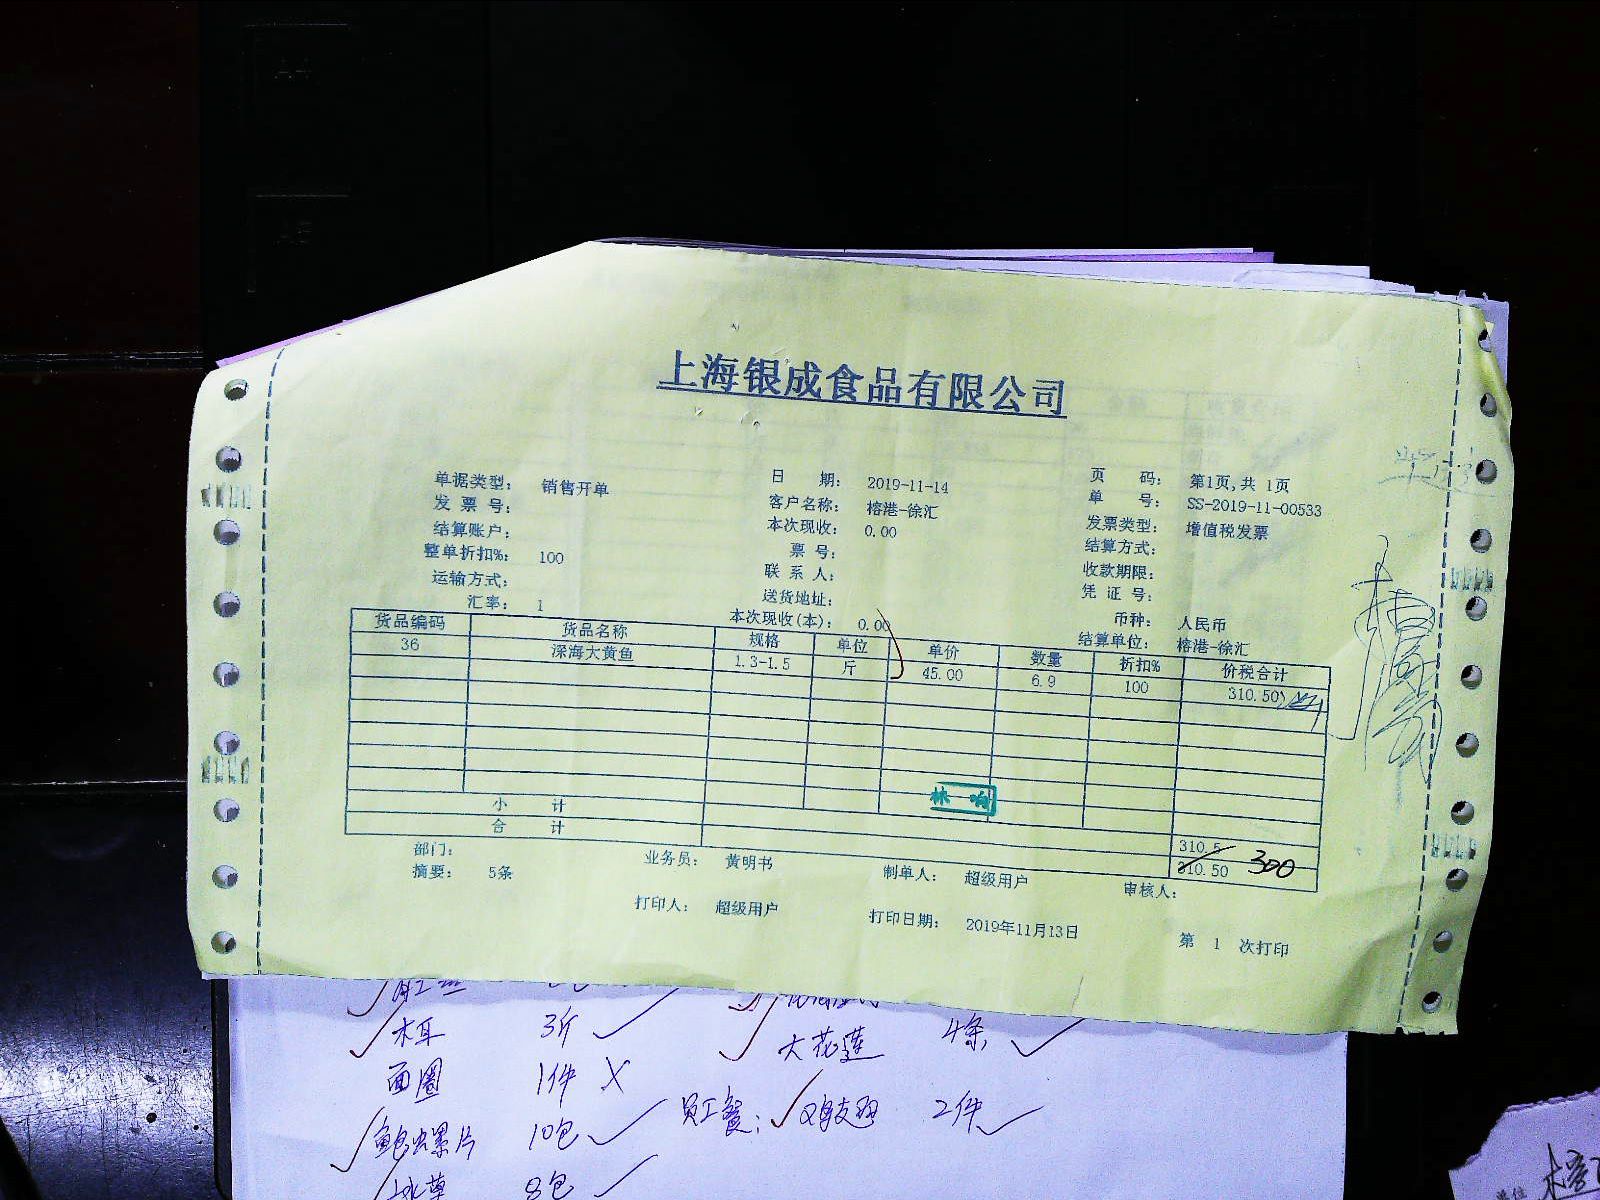 上海银成食品有限公司
单据类型： 销售开单 日 期： 2019-11-14 页 码： 第1页,共 1页
发 票 号： 客户名称： 榕港-徐汇 单 号： SS-2019-11-00533
结算账户： 本次现收： 0.00 发票类型： 增值税发票
整单折扣%： 100 票 号： 结算方式：
运输方式： 联 系 人： 收款期限：
汇率： 1 送货地址： 凭 证 号：
本次现收(本)： 0.00 币种： 人民币
结算单位： 榕港-徐汇
货品编码 货品名称 规格 单位 单价 数量 折扣% 价税合计
36 深海大黄鱼 1.3-1.5 斤 45.00 6.9 100 310.50
小 计 310.5
合 计 310.50 300
部门： 业务员： 黄明书 制单人： 超级用户 审核人：
摘要： 5条
打印人： 超级用户 打印日期： 2019年11月13日 第 1 次打印
木耳 3斤 大花莲 4条
面圈 1件
鲍螺片 10包 员工餐： 鸡翅 2件
冰草 8包